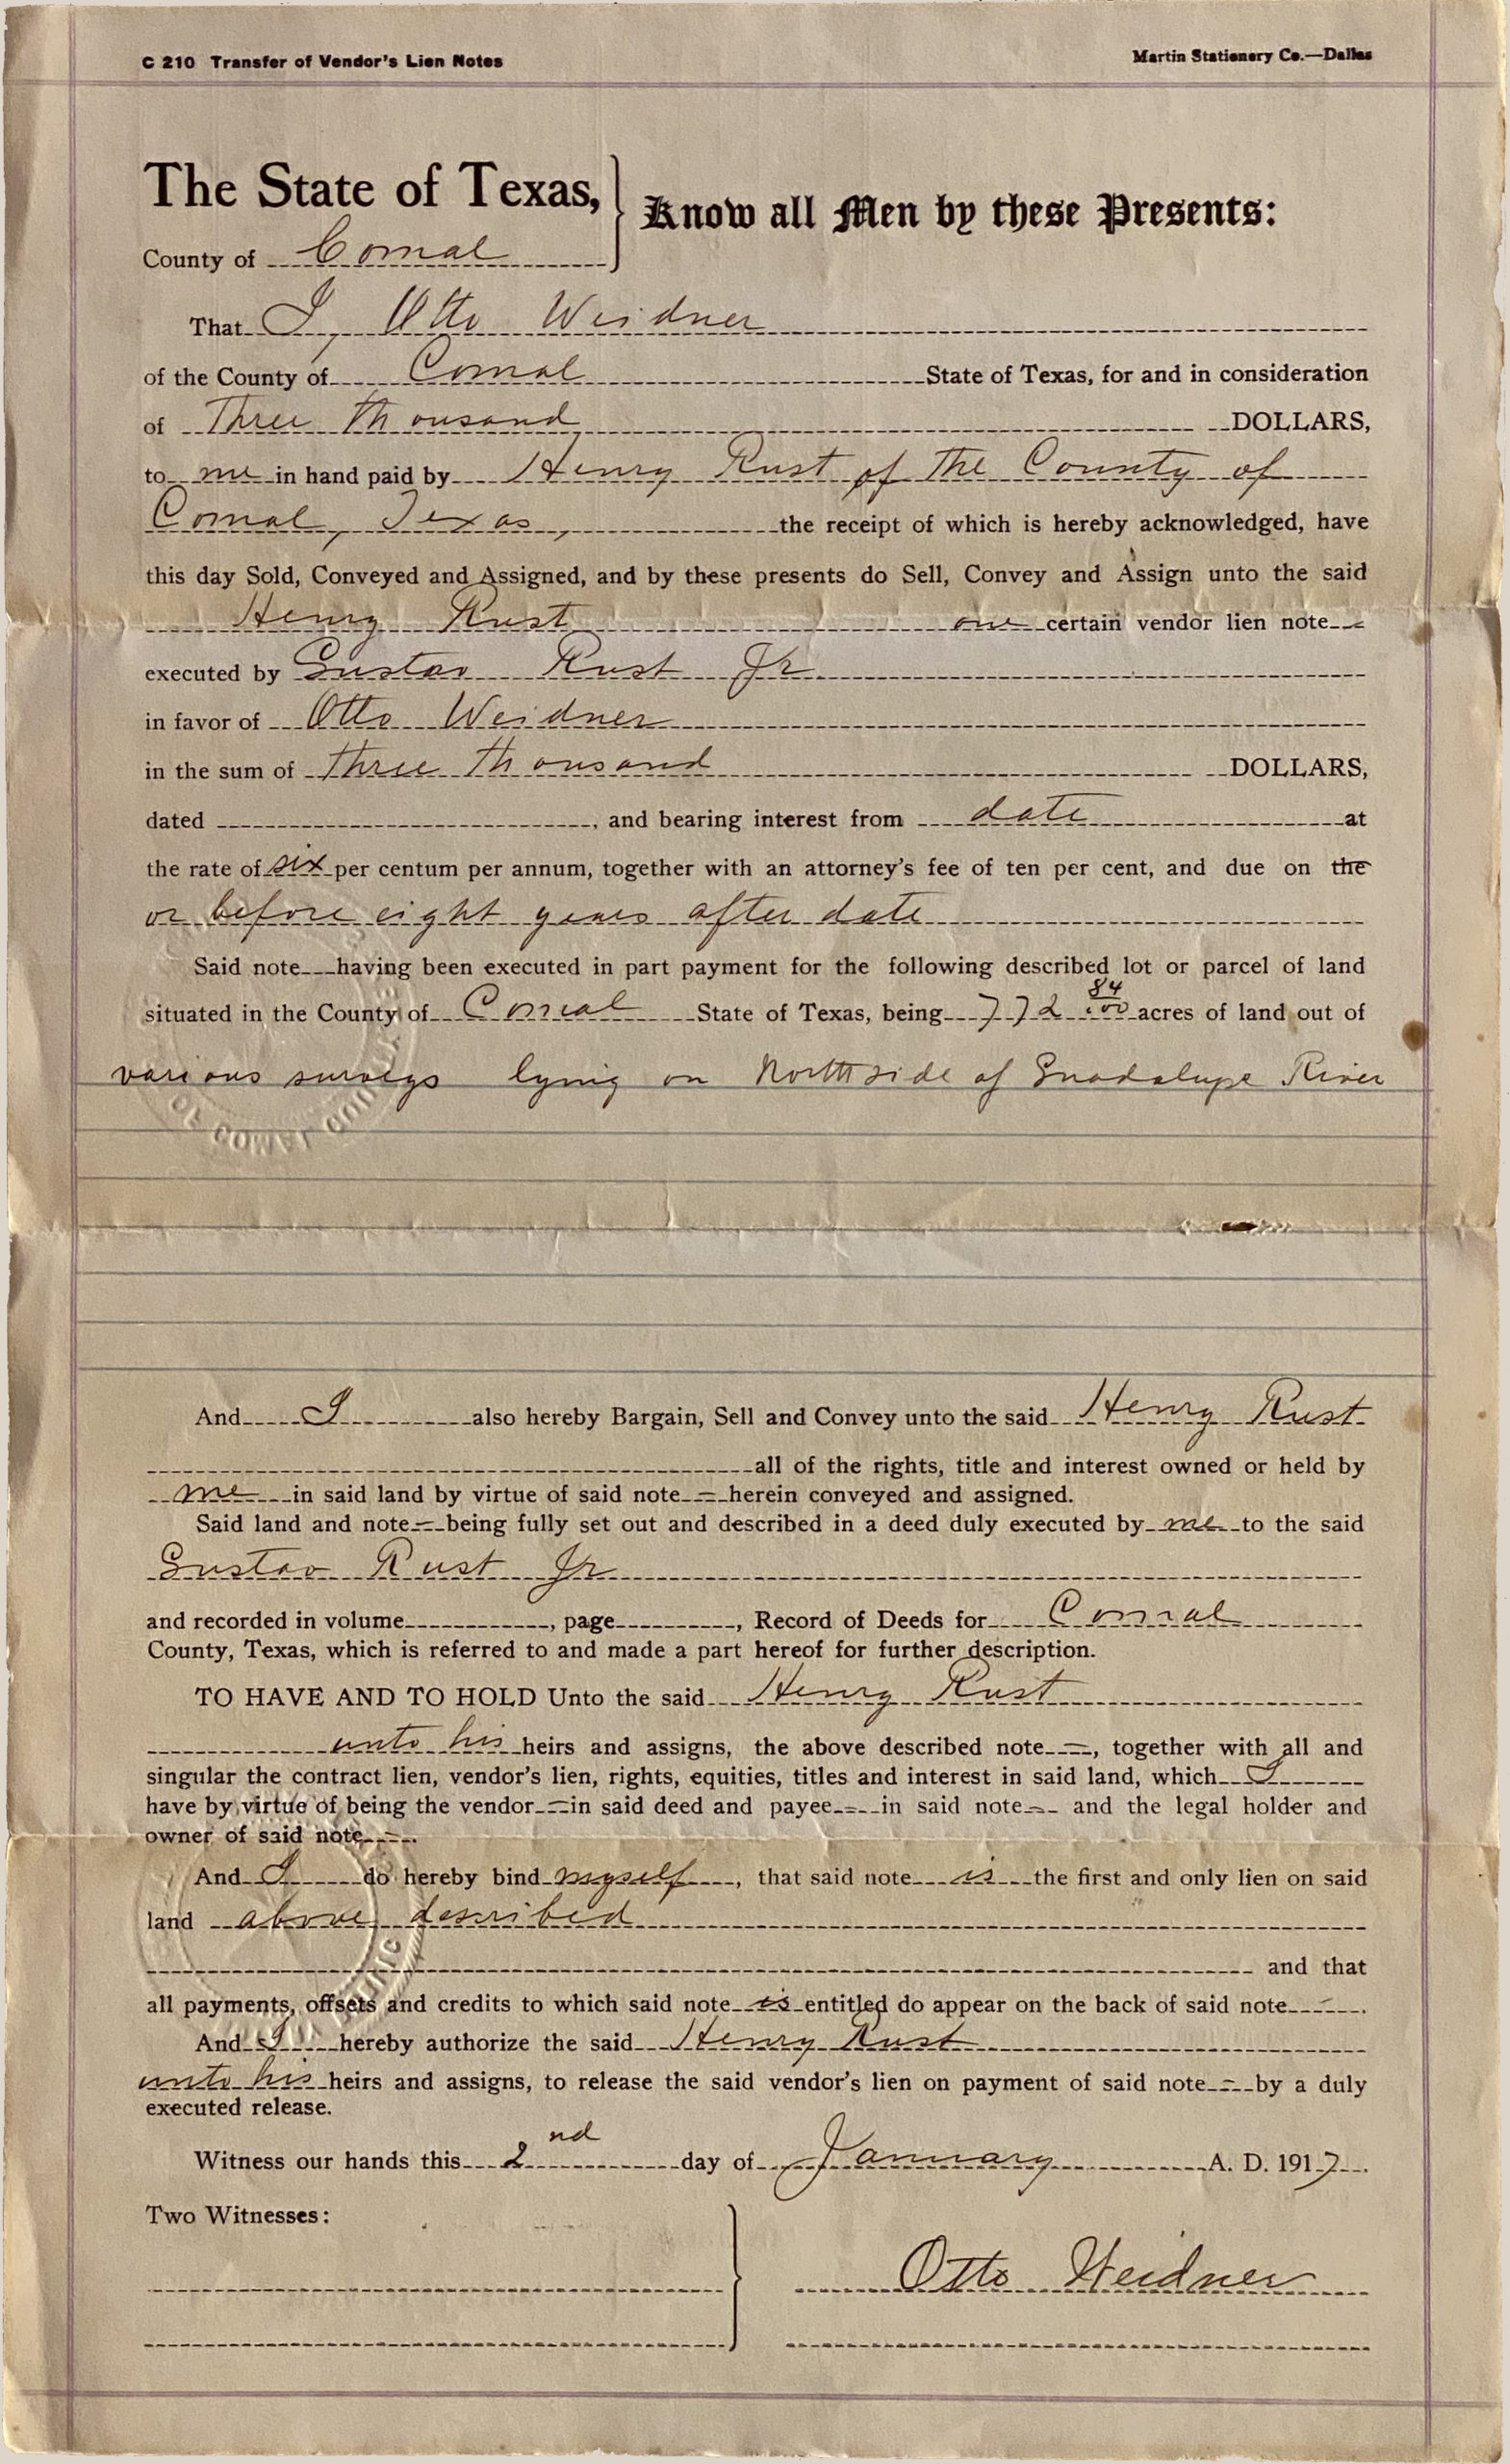 C 210 Transfer of Vendor's Lien Notes
Martin Stationery Co.—Dallas
The State of Texas,
Know all Men by these Presents:
County of Comal
That I, Otto Weidner
of the County of Comal State of Texas, for and in consideration
of Three thousand DOLLARS,
to me in hand paid by Henry Rust of the County of
Comal, Texas, the receipt of which is hereby acknowledged, have
this day Sold, Conveyed and Assigned, and by these presents do Sell, Convey and Assign unto the said
Henry Rust one certain vendor lien note
executed by Gustav Rust Jr
in favor of Otto Weidner
in the sum of three thousand DOLLARS,
dated , and bearing interest from date at
the rate of six per centum per annum, together with an attorney's fee of ten per cent, and due on the
or before eight years after date
Said note having been executed in part payment for the following described lot or parcel of land
situated in the County of Comal State of Texas, being 772 84/100 acres of land out of
various surveys lying on North side of Guadalupe River
And I also hereby Bargain, Sell and Convey unto the said Henry Rust
all of the rights, title and interest owned or held by
me in said land by virtue of said note herein conveyed and assigned.
Said land and note being fully set out and described in a deed duly executed by me to the said
Gustav Rust Jr
and recorded in volume , page , Record of Deeds for Comal
County, Texas, which is referred to and made a part hereof for further description.
TO HAVE AND TO HOLD Unto the said Henry Rust
unto his heirs and assigns, the above described note , together with all and
singular the contract lien, vendor's lien, rights, equities, titles and interest in said land, which I
have by virtue of being the vendor in said deed and payee in said note and the legal holder and
owner of said note .
And I do hereby bind myself , that said note is the first and only lien on said
land above described
and that
all payments, offsets and credits to which said note is entitled do appear on the back of said note .
And I hereby authorize the said Henry Rust
unto his heirs and assigns, to release the said vendor's lien on payment of said note by a duly
executed release.
Witness our hands this 2nd day of January A. D. 1917 .
Two Witnesses:
Otto Weidner